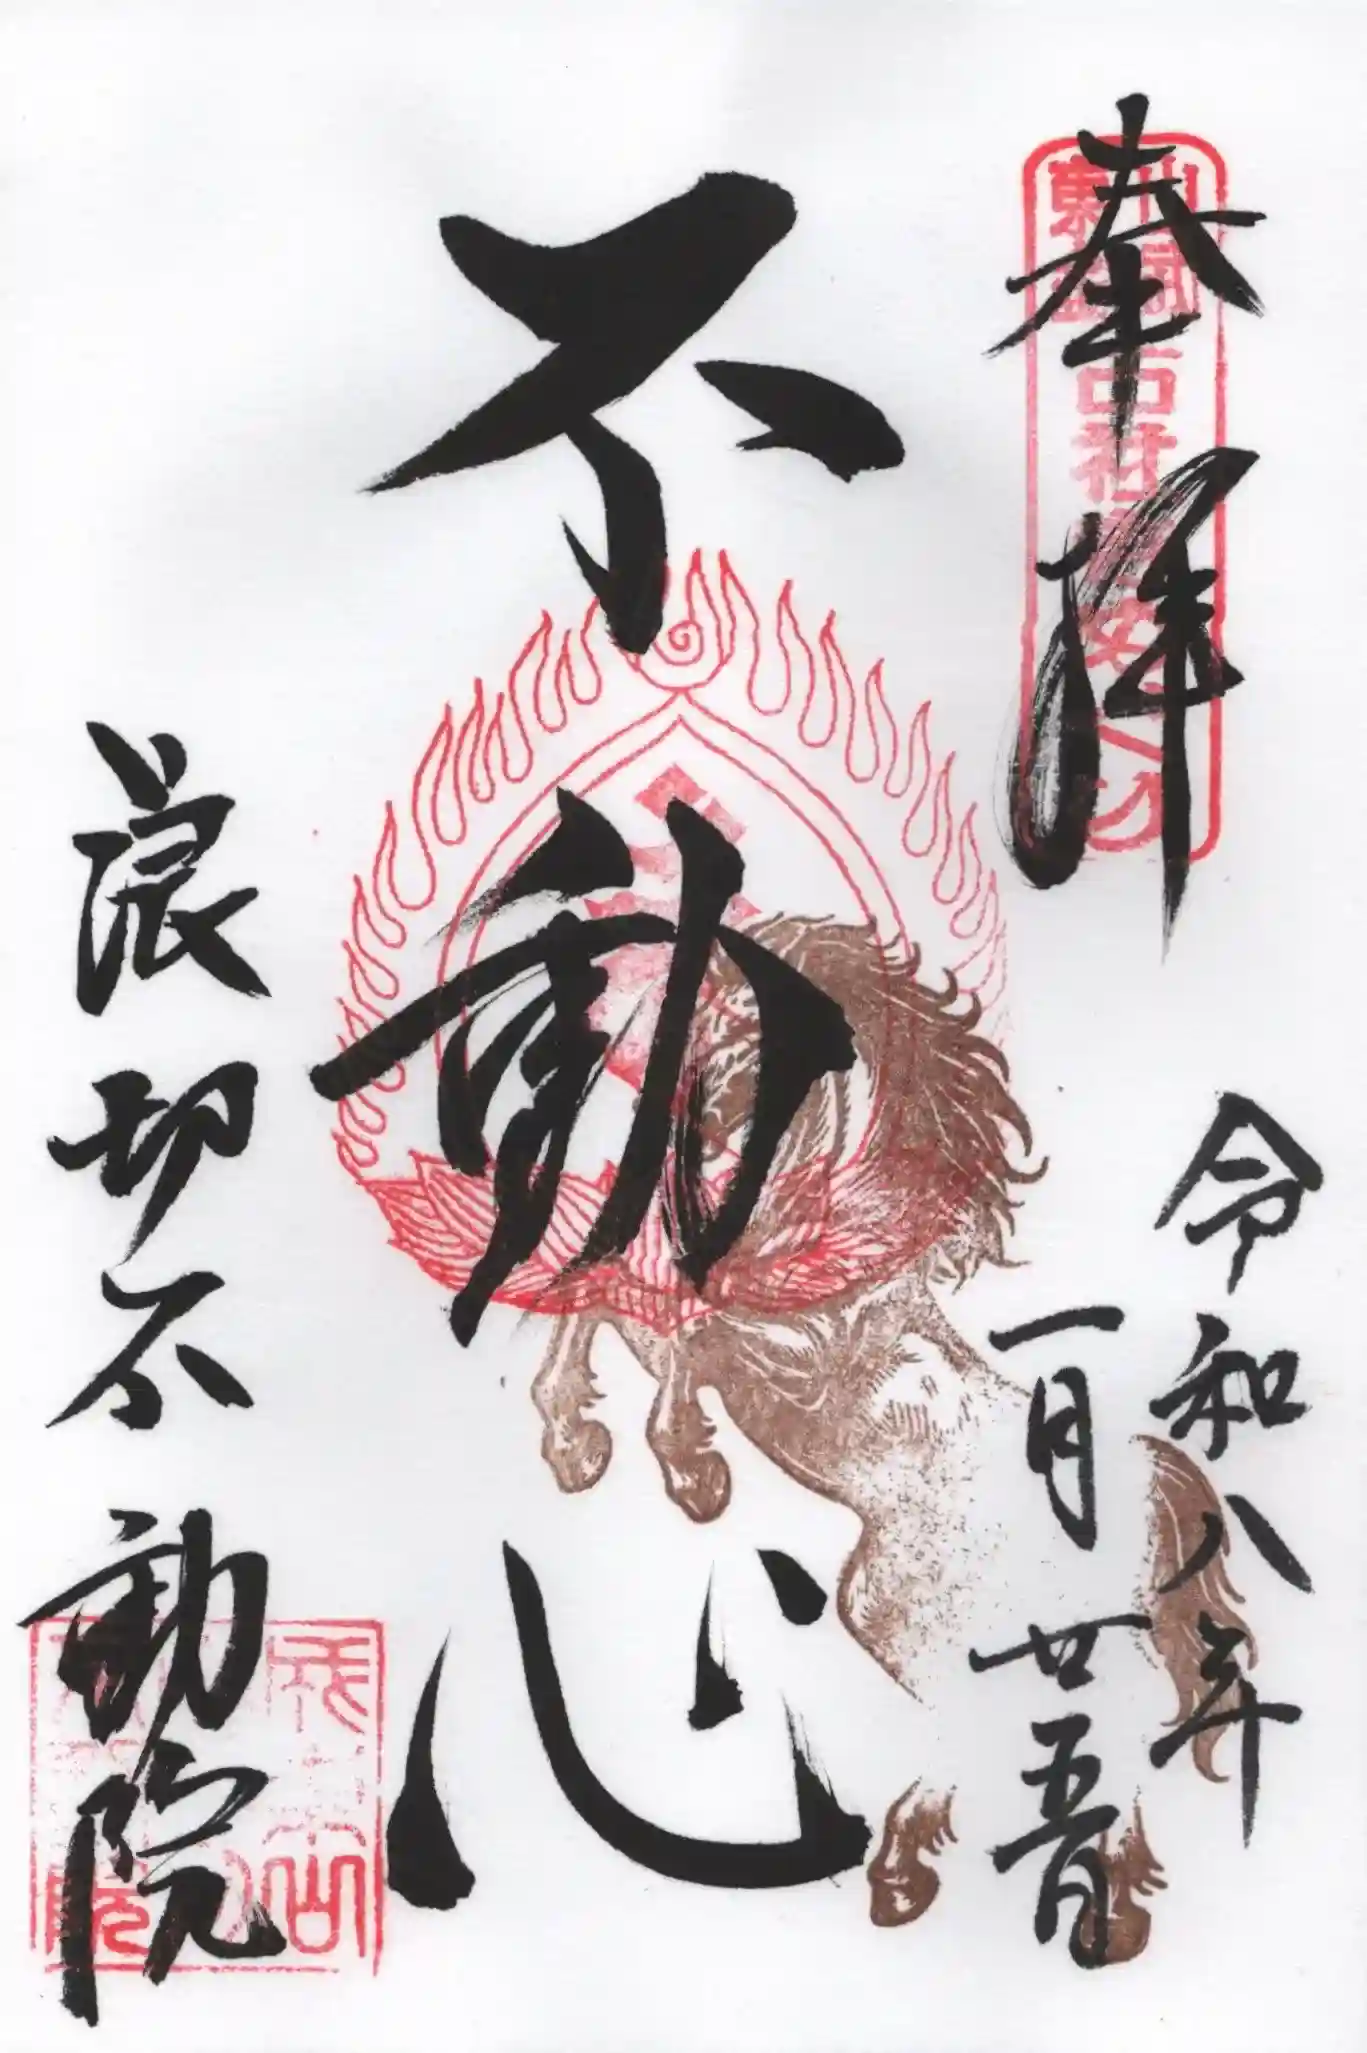 奉拝
令和八年
一月廿五日
不動心
浪切不動院